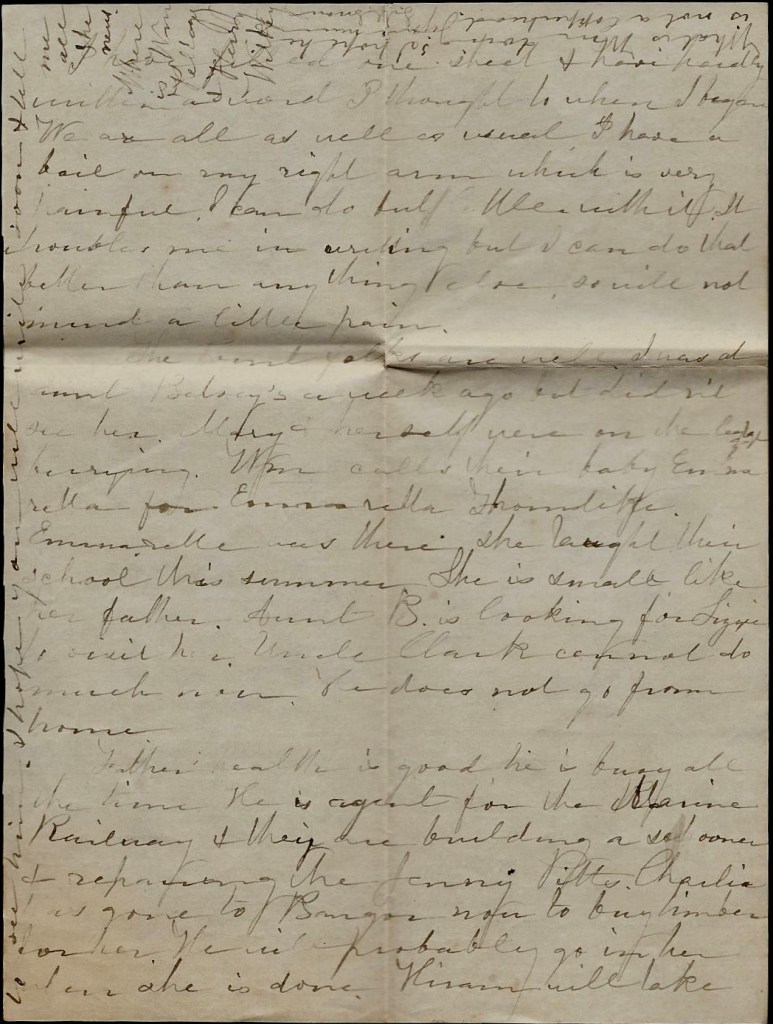 one sheet & have hardly
written a word I thought to when I began
We are all as well as usual I have a
boil on my right arm which is very
painful. I can do but with it. It
troubles me in writing but I can do that
better than any thing else, so will not
mind a little pain.
The Point folks are well. I was at
aunt Betsey's a week ago but didn't
see her. Mary & herself were on the
berrying. Wm calls their baby Emma
retta for Emmaretta
Emmarette was there. She taught their
school this summer She is small like
her father. Aunt B. is looking for Lizzie
to visit her. Uncle Clark cannot do
much now. He does not go from
home.
Father health is good he is busy all
the time He is agent for the Marine
Railway & they are building a schooner
& repairing the Jenny Pitts. Charlie
has gone to Bangor now to buy timber
for her. He will probably go in her
when she is done. Hiram will take
to see him. I hope you will write soon & tell
me
all
the
news
Where
is Wm
What is Wm
is not a Copperhead